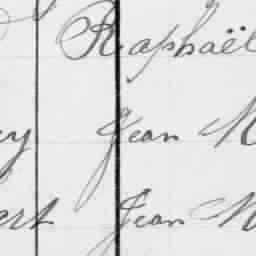 Raphaël
ey Jean M
ert Jean M